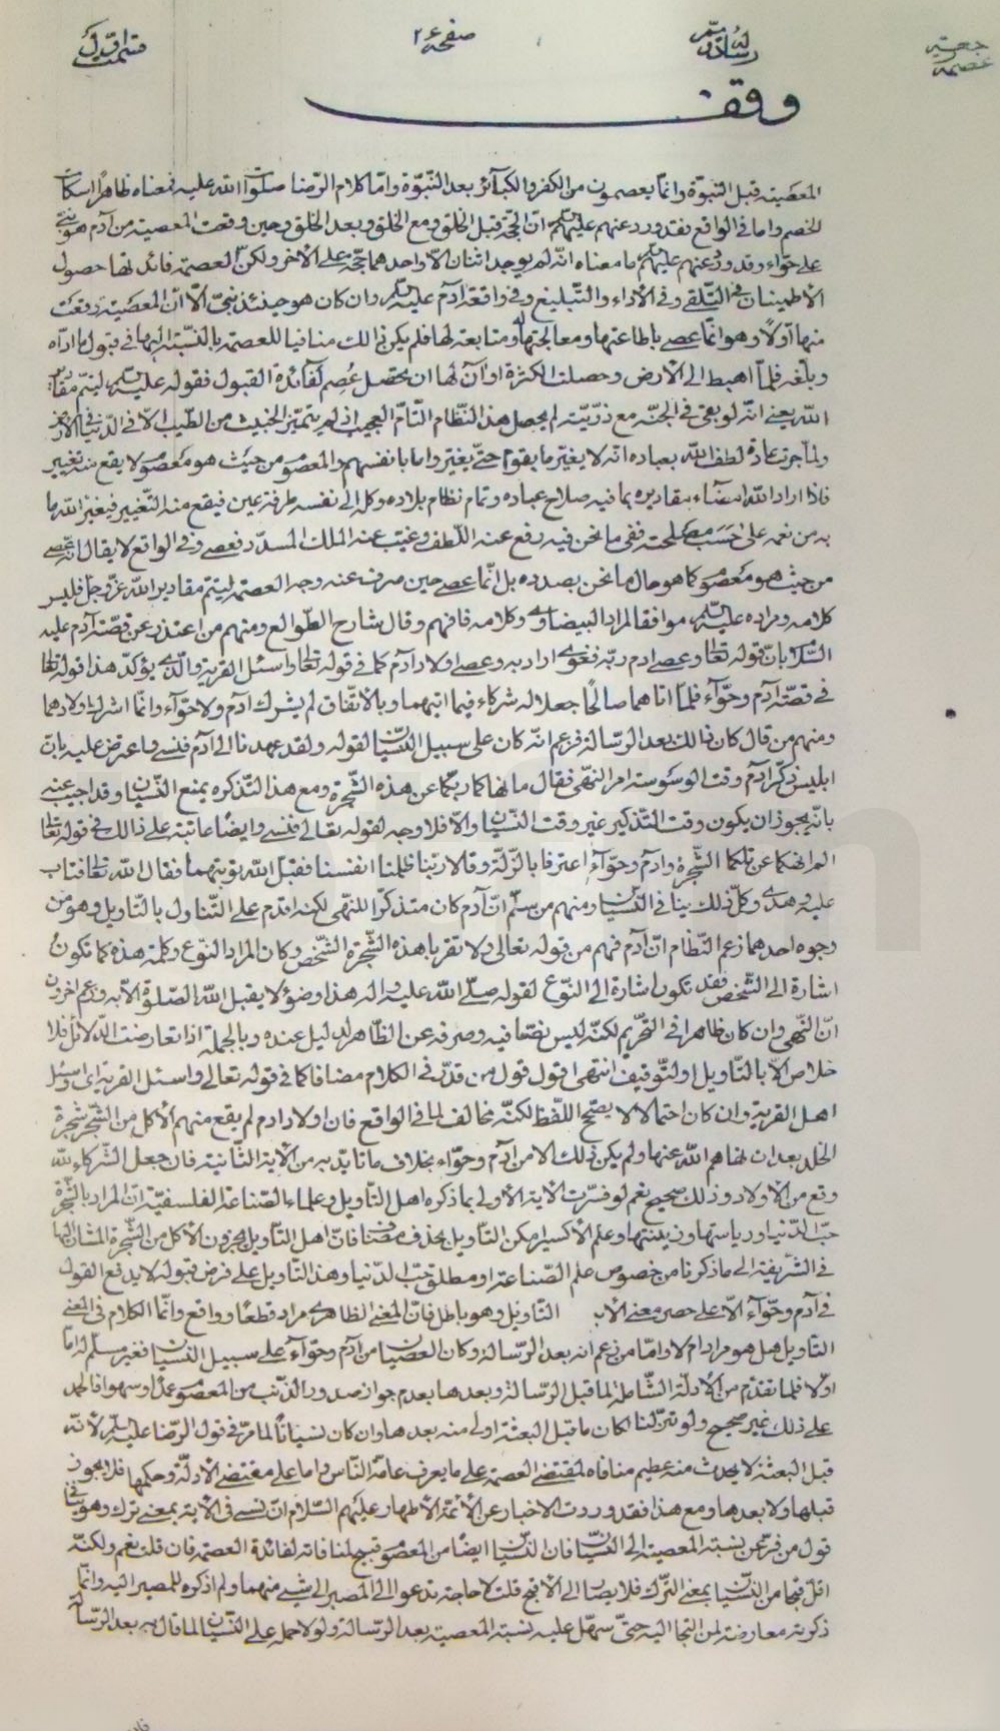 صفحه ۲۶
وقف
المعصية قبل النبوّة وانما يعصمون من الكفر والكبائر بعد النّبوّة وامّا كلام الرّضا صلوات الله عليه فمعناه ظاهراً اسكات
الخصم واما فى الواقع فقد ورد عنهم عليهم السلام انّ الحجّة قبل الخلق ومع الخلق وبعد الخلق وحين وقعت المعصية من آدم هو نبىّ
على حوّاء وقد ورد عنهم عليهم السلام ما معناه انّه لو لم يوجد اثنان الاّ واحدهما حجّة على الآخر ولكنّ العصمة فائدتها حصول
الاطمينان فى التّلقى وفى الاداء والتّبليغ وفى واقعة آدم عليه السلام وان كان هو حينئذ نبىّ الاّ انّ المعصية وقعت
منها اولاً وهو انّما عصى باطاعتها ومعالجتها له ومتابعته لها فلم يكن ذالك منافيا للعصمة بالنّسبة اليها فى قبول ما ادّاه
وبلّغه فلمّا اهبط الى الارض وحصلت الكثرة او آن لها ان تحصل عُصِم لفائدة القبول فقوله عليه السلام ليتمّ مقادير
الله يعنى انّه لو بقى فى الجنّة مع ذرّيّته لم يحصل هذا النّظام التّامّ العجيب اذ لم يتميّز الخبيث من الطّيب الاّ فى الدّنيا فى الارض
ولمّا جرت عادة لطف الله بعباده انّه لا يغيّر ما بقوم حتّى يغيّروا ما بانفسهم والمعصوم من حيث هو معصوم لا يقع منه تغيير
فاذا اراد الله امضاء مقاديره بما فيه صلاح عباده وتمام نظام بلاده وكله الى نفسه طرفة عين فيقع منه التّغيير فيغيّر الله ما
به من نعمه على حَسَب مصلحته ففى ما نحن فيه رفع عنه اللّطف وغيّب عنه الملك المسدّد فعصى وفى الواقع لا يقال انّه عصى
من حيث هو معصوم كما هو حال ما نحن بصدده بل انّما عصى حين صرف عنه وجه العصمة ليتمّ مقادير الله عزّ وجلّ فليس
كلامه ومراده عليه السلام موافقا لمراد البيضاوى وكلامه فافهم وقال شارح الطّوالع ومنهم من اعتذر عن قصّة آدم عليه
السّلام بانّ قوله تعالى وعصى ادم ربّه فغوى اراد به وعصى اولاد آدم كما فى قوله تعالى واسئل القرية والّذى يؤكّد هذا قوله تعالى
فى قصّة آدم وحوّاء فلمّا اتاهما صالحاً جعلا له شركاء فيما اتيهما وبالاتّفاق لم يشرك آدم ولا حوّاء وانّما اشرك اولادهما
ومنهم من قال كان ذالك بعد الرّسالة فزعم انّه كان على سبيل النّسيان لقوله ولقد عهدنا الى آدم فنسى واعترض عليه بانّ
ابليس ذكّر آدم وقت الوسوسة امر النّهى فقال ما نهاكما ربّكما عن هذه الشّجرة ومع هذا التّذكره يمنع النّسيان وقد اجيب عنه
بانّه يجوز ان يكون وقت التّذكير غير وقت النّسيان والاّ فلا وجه لقوله تعالى فنسى وايضاً عاتبه على ذالك فى قوله تعالى
الم انهكما عن تلكما الشّجرة وادم وحوّاء اعترفا بالزّلّة وقالا ربّنا ظلمنا انفسنا فقبل الله توبتهما فقال الله تعالى فتاب
عليه وهدى وكلّ ذلك ينافى النّسيان ومنهم من سلّم انّ آدم كان متذكّرا للنهى لكنه اقدم على التّناول بالتّاويل وهو من
وجوه احدهما زعم النّظام انّ آدم فهم من قوله تعالى ولا تقربا هذه الشّجرة الشّخص وكان المراد النّوع وكلمة هذه كما تكون
اشارة الى الشّخص فقد تكون اشارة الى النّوع لقوله صلّى الله عليه واله هذا وضوء لا يقبل الله الصّلوة الاّ به وزعم اخرون
انّ النّهى وان كان ظاهرا فى التّحريم لكنّه ليس نصّا فيه وصرفه عن الظّاهر لدليل عنده وبالجملة اذا تعارضت الدّلائل فلا
خلاص الاّ بالتّاويل او التّوقيف انتهى اقول قول من قدّر فى الكلام مضافا كما فى قوله تعالى واسئل القرية اى واسئل
اهل القرية وان كان احتمالا لا يصحّح اللّفظ لكنّه مخالف لما فى الواقع فان اولاد ادم لم يقع منهم الاكل من الشّجرة شجرة
الخلد بعد ان نهاهم الله عنها ولم يكن ذلك الا من آدم وحوّاء بخلاف ما تايّد به من الآية الثّانية فان جعل الشّركاء لله
وقع من الاولاد وذلك صحيح نعم لو فسّرت الاية الاولى بما ذكره اهل التّأويل وعلماء الصّناعة الفلسفيّة انّ المراد بالشّجرة
حبّ الدّنيا ورياستها وزينتها وعلم الاكسير امكن التّأويل بحذف مضاف فانّ اهل التّأويل يجوّزون الاكل من الشّجرة المشار اليها
فى الشّريفة الى ما ذكرنا من خصوص علم الصّناعة او مطلق حبّ الدّنيا وهذا التّاويل على فرض قبوله لا يدفع القول
فى آدم وحوّاء الاّ على حصر معنى الآية التّاويل وهو باطل فانّ المعنى الظاهرى مراد قطعاً وواقع وانّما الكلام فى المعنى
التّاويل هل هو مراد ام لا وامّا من زعم انه بعد الرّسالة وكان العصيان من آدم وحوّاء على سبيل النّسيان فغير مسلّم له امّا
اوّلا فلما تقدّم من الادلّة الشّاملة لما قبل الرّسالة وبعدها بعدم جواز صدور الذّنب من المعصوم عمداً وسهوا فالحمد
على ذلك غير صحيح ولو تنزّلنا لكان ما قبل البعثة اولى منه بعدها وان كان نسياناً لما مرّ فى قول الرّضا عليه السلام لانّه
قبل البعثة لا يحدث منه عظيم منافاة لمقتضى العصمة على ما يعرف عامّة النّاس واما على مقتضى الادلّة وحكمها فلا يجوز
قبلها ولا بعدها ومع هذا فقد وردت الاخبار عن الائمّة الاطهار عليهم السّلام انّ نسى فى الاية بمعنى ترك وهو ينافى
قول من فرّ عن نسبة المعصية الى النّسيان فان النّسيان ايضاً من المعصوم قبيح لمنافاته لفائدة العصمة فان قلت نعم ولكنّه
اقلّ قبحا من النّسيان بمعنى التّرك فلا يصار الى الاقبح قلت لا حاجة تدعو الى المصير الى شىء منهما ولم اذكره للمصير اليه وانّما
ذكرته معارضة لمن التجا اليه حتّى سهّل عليه نسبة المعصية بعد الرّسالة ولولا حمله على النّسيان لما قال به بعد الرّسالة